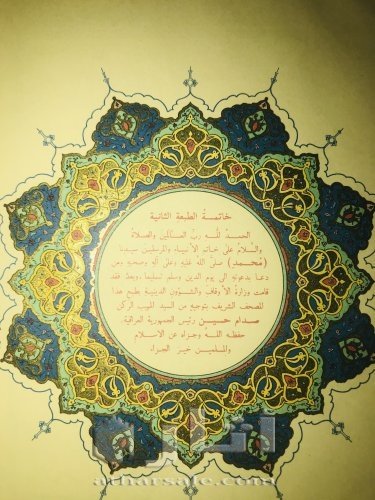 خاتمة الطبعة الثانية
الحمد لله رب العالمين والصلاة
والسلام على خاتم الأنبياء والمرسلين سيدنا
(محمد) صلى الله عليه وعلى آله وصحبه ومن
دعا بدعوته الى يوم الدين وسلم تسليما، وبعد فقد
قامت وزارة الأوقاف والشؤون الدينية بطبع هذا
المصحف الشريف بتوجيه من السيد المهيب الركن
صدام حسين رئيس الجمهورية العراقية
حفظه الله وجزاه عن الاسلام
والمسلمين خير الجزاء
atharsale.com